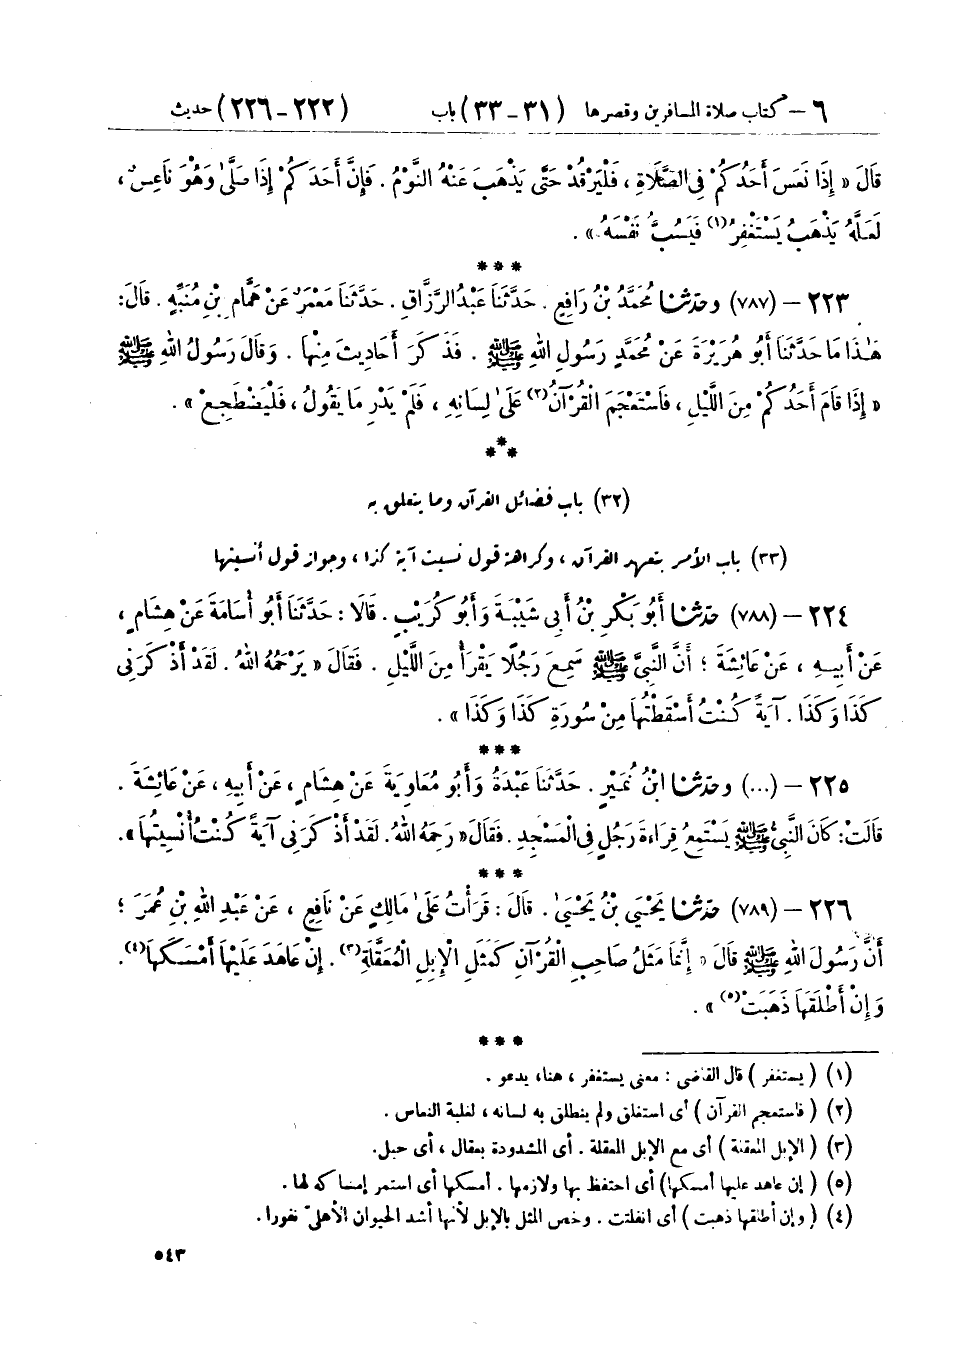 ٦ – كتاب صلاة المسافرين وقصرها (٣١ – ٣٣) باب (٢٢٢ – ٢٢٦) حديث
قَالَ « إِذَا نَعَسَ أَحَدُكُمْ فِي الصَّلَاةِ ، فَلْيَرْقُدْ حَتَّى يَذْهَبَ عَنْهُ النَّوْمُ . فَإِنَّ أَحَدَكُمْ إِذَا صَلَّىٰ وَهُوَ نَاعِسٌ ،
لَعَلَّهُ يَذْهَبُ يَسْتَغْفِرُ(١) فَيَسُبُّ نَفْسَهُ » .
***
٢٢٣ – (٧٨٧) وحَدَّثَنَا مُحَمَّدُ بْنُ رَافِعٍ . حَدَّثَنَا عَبْدُ الرَّزَّاقِ . حَدَّثَنَا مَعْمَرٌ عَنْ هَمَّامِ بْنِ مُنَبِّهٍ . قَالَ :
هَٰذَا مَا حَدَّثَنَا أَبُو هُرَيْرَةَ عَنْ مُحَمَّدٍ رَسُولِ اللهِ ﷺ . فَذَكَرَ أَحَادِيثَ مِنْهَا . وَقَالَ رَسُولُ اللهِ ﷺ
« إِذَا قَامَ أَحَدُكُمْ مِنَ اللَّيْلِ ، فَاسْتَعْجَمَ الْقُرْآنُ(٢) عَلَىٰ لِسَانِهِ ، فَلَمْ يَدْرِ مَا يَقُولُ ، فَلْيَضْطَجِعْ » .
***
(٣٢) باب فضائل القرآن وما يتعلق به
(٣٣) باب الأمر بتعهد القرآن ، وكراهة قول نسيت آية كذا ، وجواز قول أنسيتها
٢٢٤ – (٧٨٨) حَدَّثَنَا أَبُو بَكْرِ بْنُ أَبِي شَيْبَةَ وَأَبُو كُرَيْبٍ . قَالَا : حَدَّثَنَا أَبُو أُسَامَةَ عَنْ هِشَامٍ ،
عَنْ أَبِيهِ ، عَنْ عَائِشَةَ ؛ أَنَّ النَّبِيَّ ﷺ سَمِعَ رَجُلًا يَقْرَأُ مِنَ اللَّيْلِ . فَقَالَ « يَرْحَمُهُ اللهُ . لَقَدْ أَذْكَرَنِي
كَذَا وَكَذَا . آيَةً كُنْتُ أَسْقَطْتُهَا مِنْ سُورَةِ كَذَا وَكَذَا » .
***
٢٢٥ – (...) وحَدَّثَنَا ابْنُ نُمَيْرٍ . حَدَّثَنَا عَبْدَةُ وَأَبُو مُعَاوِيَةَ عَنْ هِشَامٍ ، عَنْ أَبِيهِ ، عَنْ عَائِشَةَ .
قَالَتْ : كَانَ النَّبِيُّ ﷺ يَسْتَمِعُ قِرَاءَةَ رَجُلٍ فِي الْمَسْجِدِ . فَقَالَ « رَحِمَهُ اللهُ . لَقَدْ أَذْكَرَنِي آيَةً كُنْتُ أُنْسِيتُهَا » .
***
٢٢٦ – (٧٨٩) حَدَّثَنَا يَحْيَىٰ بْنُ يَحْيَىٰ . قَالَ : قَرَأْتُ عَلَىٰ مَالِكٍ عَنْ نَافِعٍ ، عَنْ عَبْدِ اللهِ بْنِ عُمَرَ ؛
أَنَّ رَسُولَ اللهِ ﷺ قَالَ « إِنَّمَا مَثَلُ صَاحِبِ الْقُرْآنِ كَمَثَلِ الْإِبِلِ الْمُعَقَّلَةِ(٣) . إِنْ عَاهَدَ عَلَيْهَا أَمْسَكَهَا(٤) .
وَإِنْ أَطْلَقَهَا ذَهَبَتْ(٥) » .
***
(١) ( يستغفر ) قال القاضى : معنى يستغفر ، هنا، يدعو .
(٢) ( فاستعجم القرآن ) أى استغلق ولم ينطلق به لسانه ، لغلبة النعاس .
(٣) ( الإبل المعقلة ) أى مع الإبل المعقلة . أى المشدودة بعقال ، أى حبل.
(٥) ( إن عاهد عليها أمسكها) أى احتفظ بها ولازمها . أمسكها أى استمر إمساكه لها .
(٤) ( وإن أطلقها ذهبت ) أى انفلتت . وخص المثل بالإبل لأنها أشد الحيوان الأهلىّ نفورا .
٥٤٣